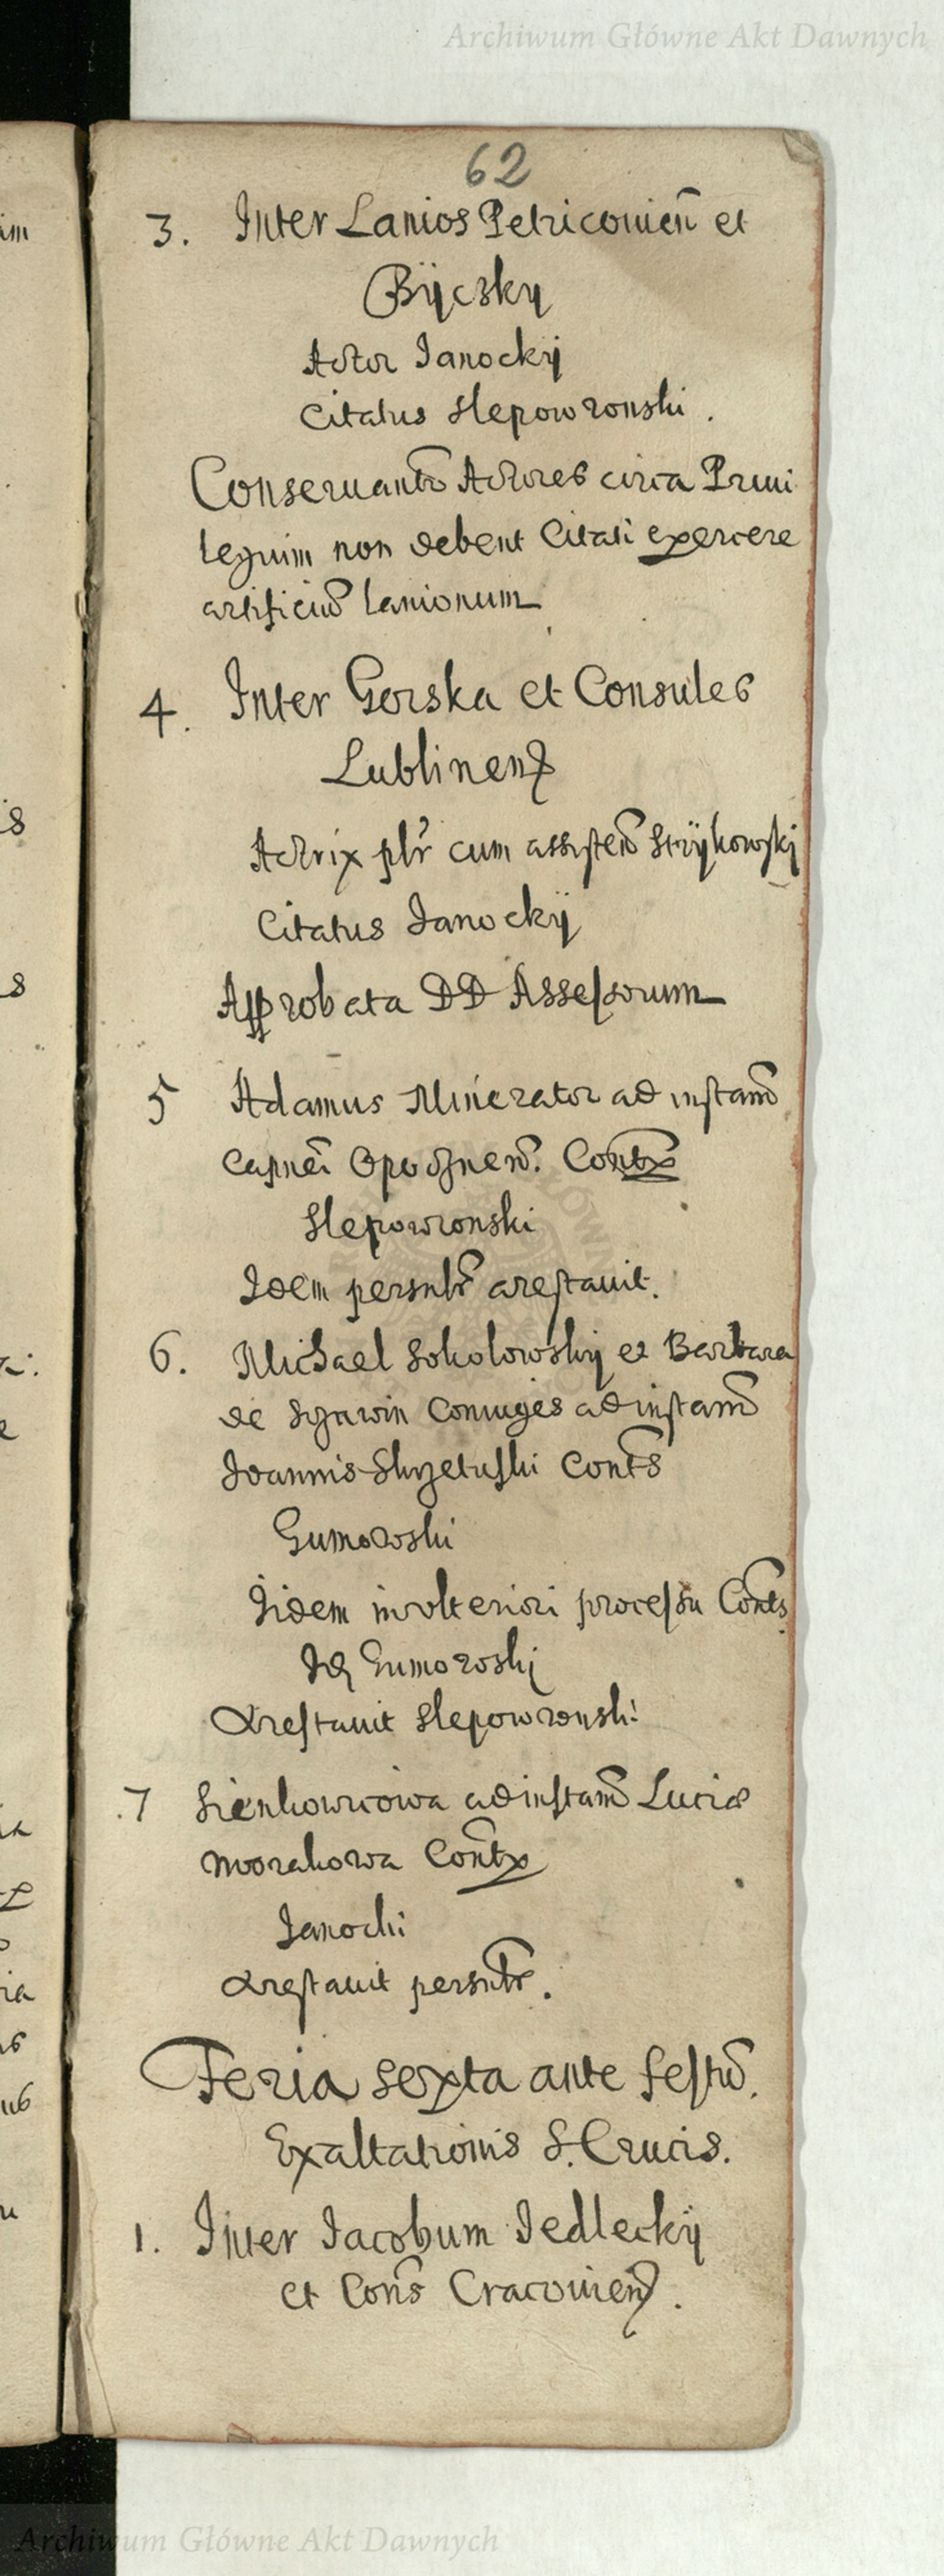 Archiwum Główne Akt Dawnych
62
3. Inter Lanios Petricouien et
Bÿcsky
Actor Janockÿ
Citatus Slepowronski.
Conseruantr Actores circa Priui
legium non debent Citati exercere
artificiu lanionum
4. Inter Gorska et Consules
Lublinen
Actrix plr cum assisten Strÿkowskj
Citatus Janockÿ
Approbata DD Assessorum
5 Adamus Minerator ad instam
Capnei Opocznen. Contra
Slepowronski
Idem arestauit.
6. Michael Sokolowsky et Barbara
de Coniuges ad instam
Joannis Skrzetuski Conts
Gumowski
Iidem in vlteriori processu Conts
Gumowski
Arestauit Slepowronski
7 Sienkowicowa ad instam Lucia
Morakowa Contra
Janocki
Arestauit
Feria sexta ante festu.
Exaltationis S. Crucis.
1. Inter Jacobum Jedleckÿ
et Cons Cracouien.
Archiwum Główne Akt Dawnych